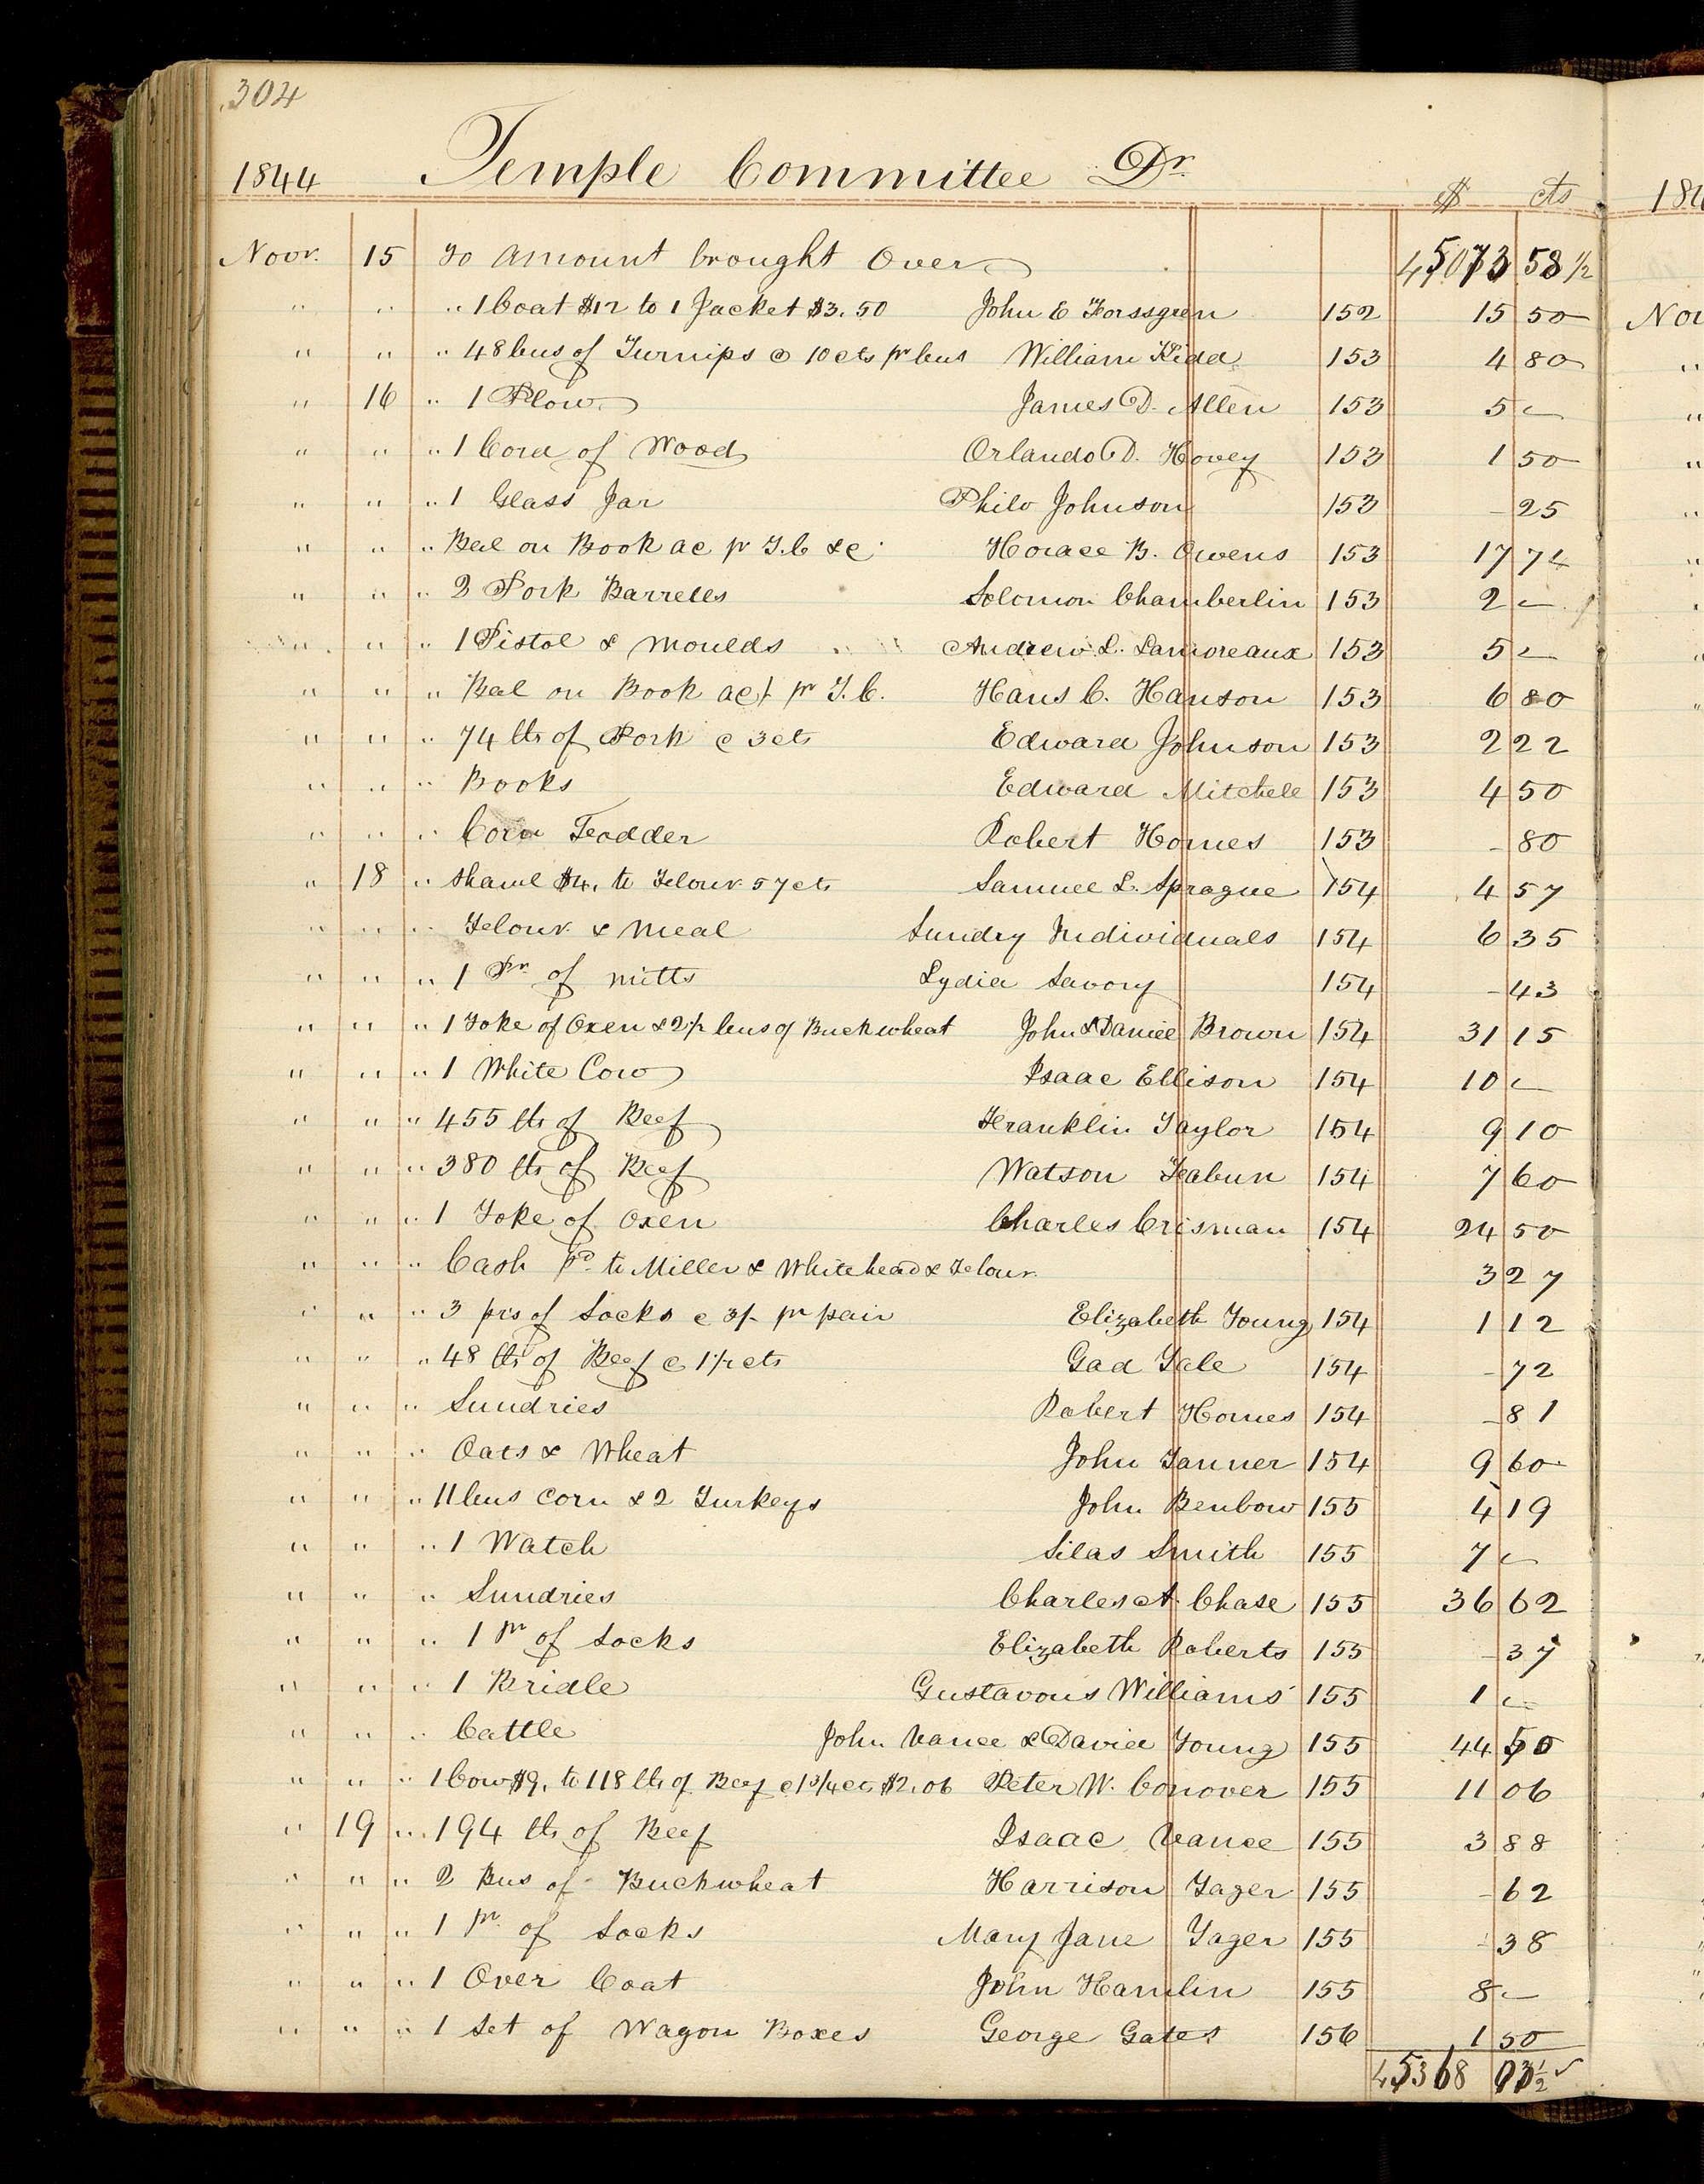 304
1844 Temple Committee Dr. $ cts
Novr. 15 To Amount brought Over 45073 58 1/2
" " " 1 Coat $12 to 1 Jacket $3.50 John E Forssgren 152 15 50
" " " 48 bus of Turnips @ 10 cts pr bus William Kidd 153 4 80
" 16 " 1 Plow James D. Allen 153 5 —
" " " 1 Cord of Wood Orlando D. Hovey 153 1 50
" " " 1 Glass Jar Philo Johnson 153 - 25
" " " Bal on Book ac pr T.C &c Horace B. Owens 153 17 74
" " " 2 Pork Barrells Solomon Chamberlin 153 2 —
" " " 1 Pistol & Moulds Andrew L. Lamoreaux 153 5 —
" " " Bal on Book ac/ pr T.C. Hans C. Hanson 153 6 80
" " " 74 lbs of Pork @ 3 cts Edward Johnson 153 2 22
" " " Books Edward Mitchell 153 4 50
" " " Corn Fodder Robert Homes 153 - 80
" 18 " Shawl $4. to Flour 57 cts Samuel L. Sprague 154 4 57
" " " Flour & Meal Sundry Individuals 154 6 35
" " " 1 Pr of mitts Lydia Savory 154 - 43
" " " 1 Yoke of Oxen & 2 1/2 bus of Buckwheat John & Daniel Brown 154 31 15
" " " 1 White Cow Isaac Ellison 154 10 —
" " " 455 lbs of Beef Franklin Taylor 154 9 10
" " " 380 lbs of Beef Watson Rabun 154 7 60
" " " 1 Yoke of Oxen Charles Crisman 154 24 50
" " " Cash pd. to Miller & Whitehead & Flour 3 27
" " " 3 prs of Socks @ 3/- pr pair Elizabeth Young 154 1 12
" " " 48 lbs of Beef @ 1 1/2 cts Gad Yale 154 - 72
" " " Sundries Robert Homes 154 - 81
" " " Oats & Wheat John Tanner 154 9 60
" " " 11 bus Corn & 2 Turkeys John Benbow 155 4 19
" " " 1 Watch Silas Smith 155 7 —
" " " Sundries Charles A. Chase 155 36 62
" " " 1 Pr of Socks Elizabeth Roberts 155 - 37
" " " 1 Bridle Gustavous Williams 155 1 —
" " " Cattle John Vance & David Young 155 44 50
" " " 1 Cow $9. to 118 lbs of Beef @ 1 3/4 cts $2.06 Peter W. Conover 155 11 06
" 19 " 194 lbs of Beef Isaac Vance 155 3 88
" " " 2 Bus of Buckwheat Harrison Yager 155 - 62
" " " 1 pr. of Socks Mary Jane Yager 155 - 38
" " " 1 Over Coat John Hamlin 155 8 —
" " " 1 Set of Wagon Boxes George Gates 156 1 50
45368 03 1/2 ✓